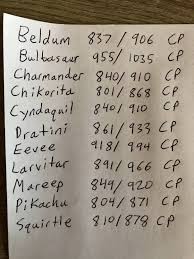 Beldum 837/906 CP
Bulbasaur 955/1035 CP
Charmander 840/910 CP
Chikorita 801/868 CP
Cyndaquil 840/910 CP
Dratini 861/933 CP
Eevee 918/994 CP
Larvitar 891/966 CP
Mareep 849/920 CP
Pikachu 804/871 CP
Squirtle 810/878 CP